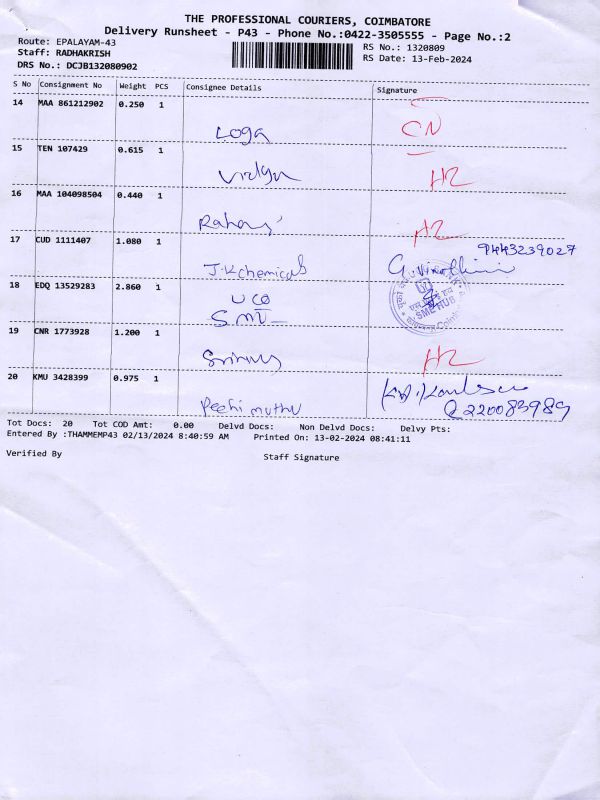 THE PROFESSIONAL COURIERS, COIMBATORE
Delivery Runsheet - P43 - Phone No.:0422-3505555 - Page No.:2
Route: EPALAYAM-43
RS No.: 1320809
Staff: RADHAKRISH
RS Date: 13-Feb-2024
DRS No.: DCJB132080902
S No Consignment No Weight PCS Consignee Details Signature
14 MAA 861212902 0.250 1
Loga CN
15 TEN 107429 0.615 1
Vidya HR
16 MAA 104098504 0.440 1
HR
17 CUD 1111407 1.080 1
9443239027
J.K chemicals
18 EDQ 13529283 2.860 1
UCO
SME HUB
19 CNR 1773928 1.200 1
HR
20 KMU 3428399 0.975 1
Pechi muthu
220083989
Tot Docs: 20 Tot COD Amt: 0.00 Delvd Docs: Non Delvd Docs: Delvy Pts:
Entered By :THAMMEMP43 02/13/2024 8:40:59 AM Printed On: 13-02-2024 08:41:11
Verified By Staff Signature